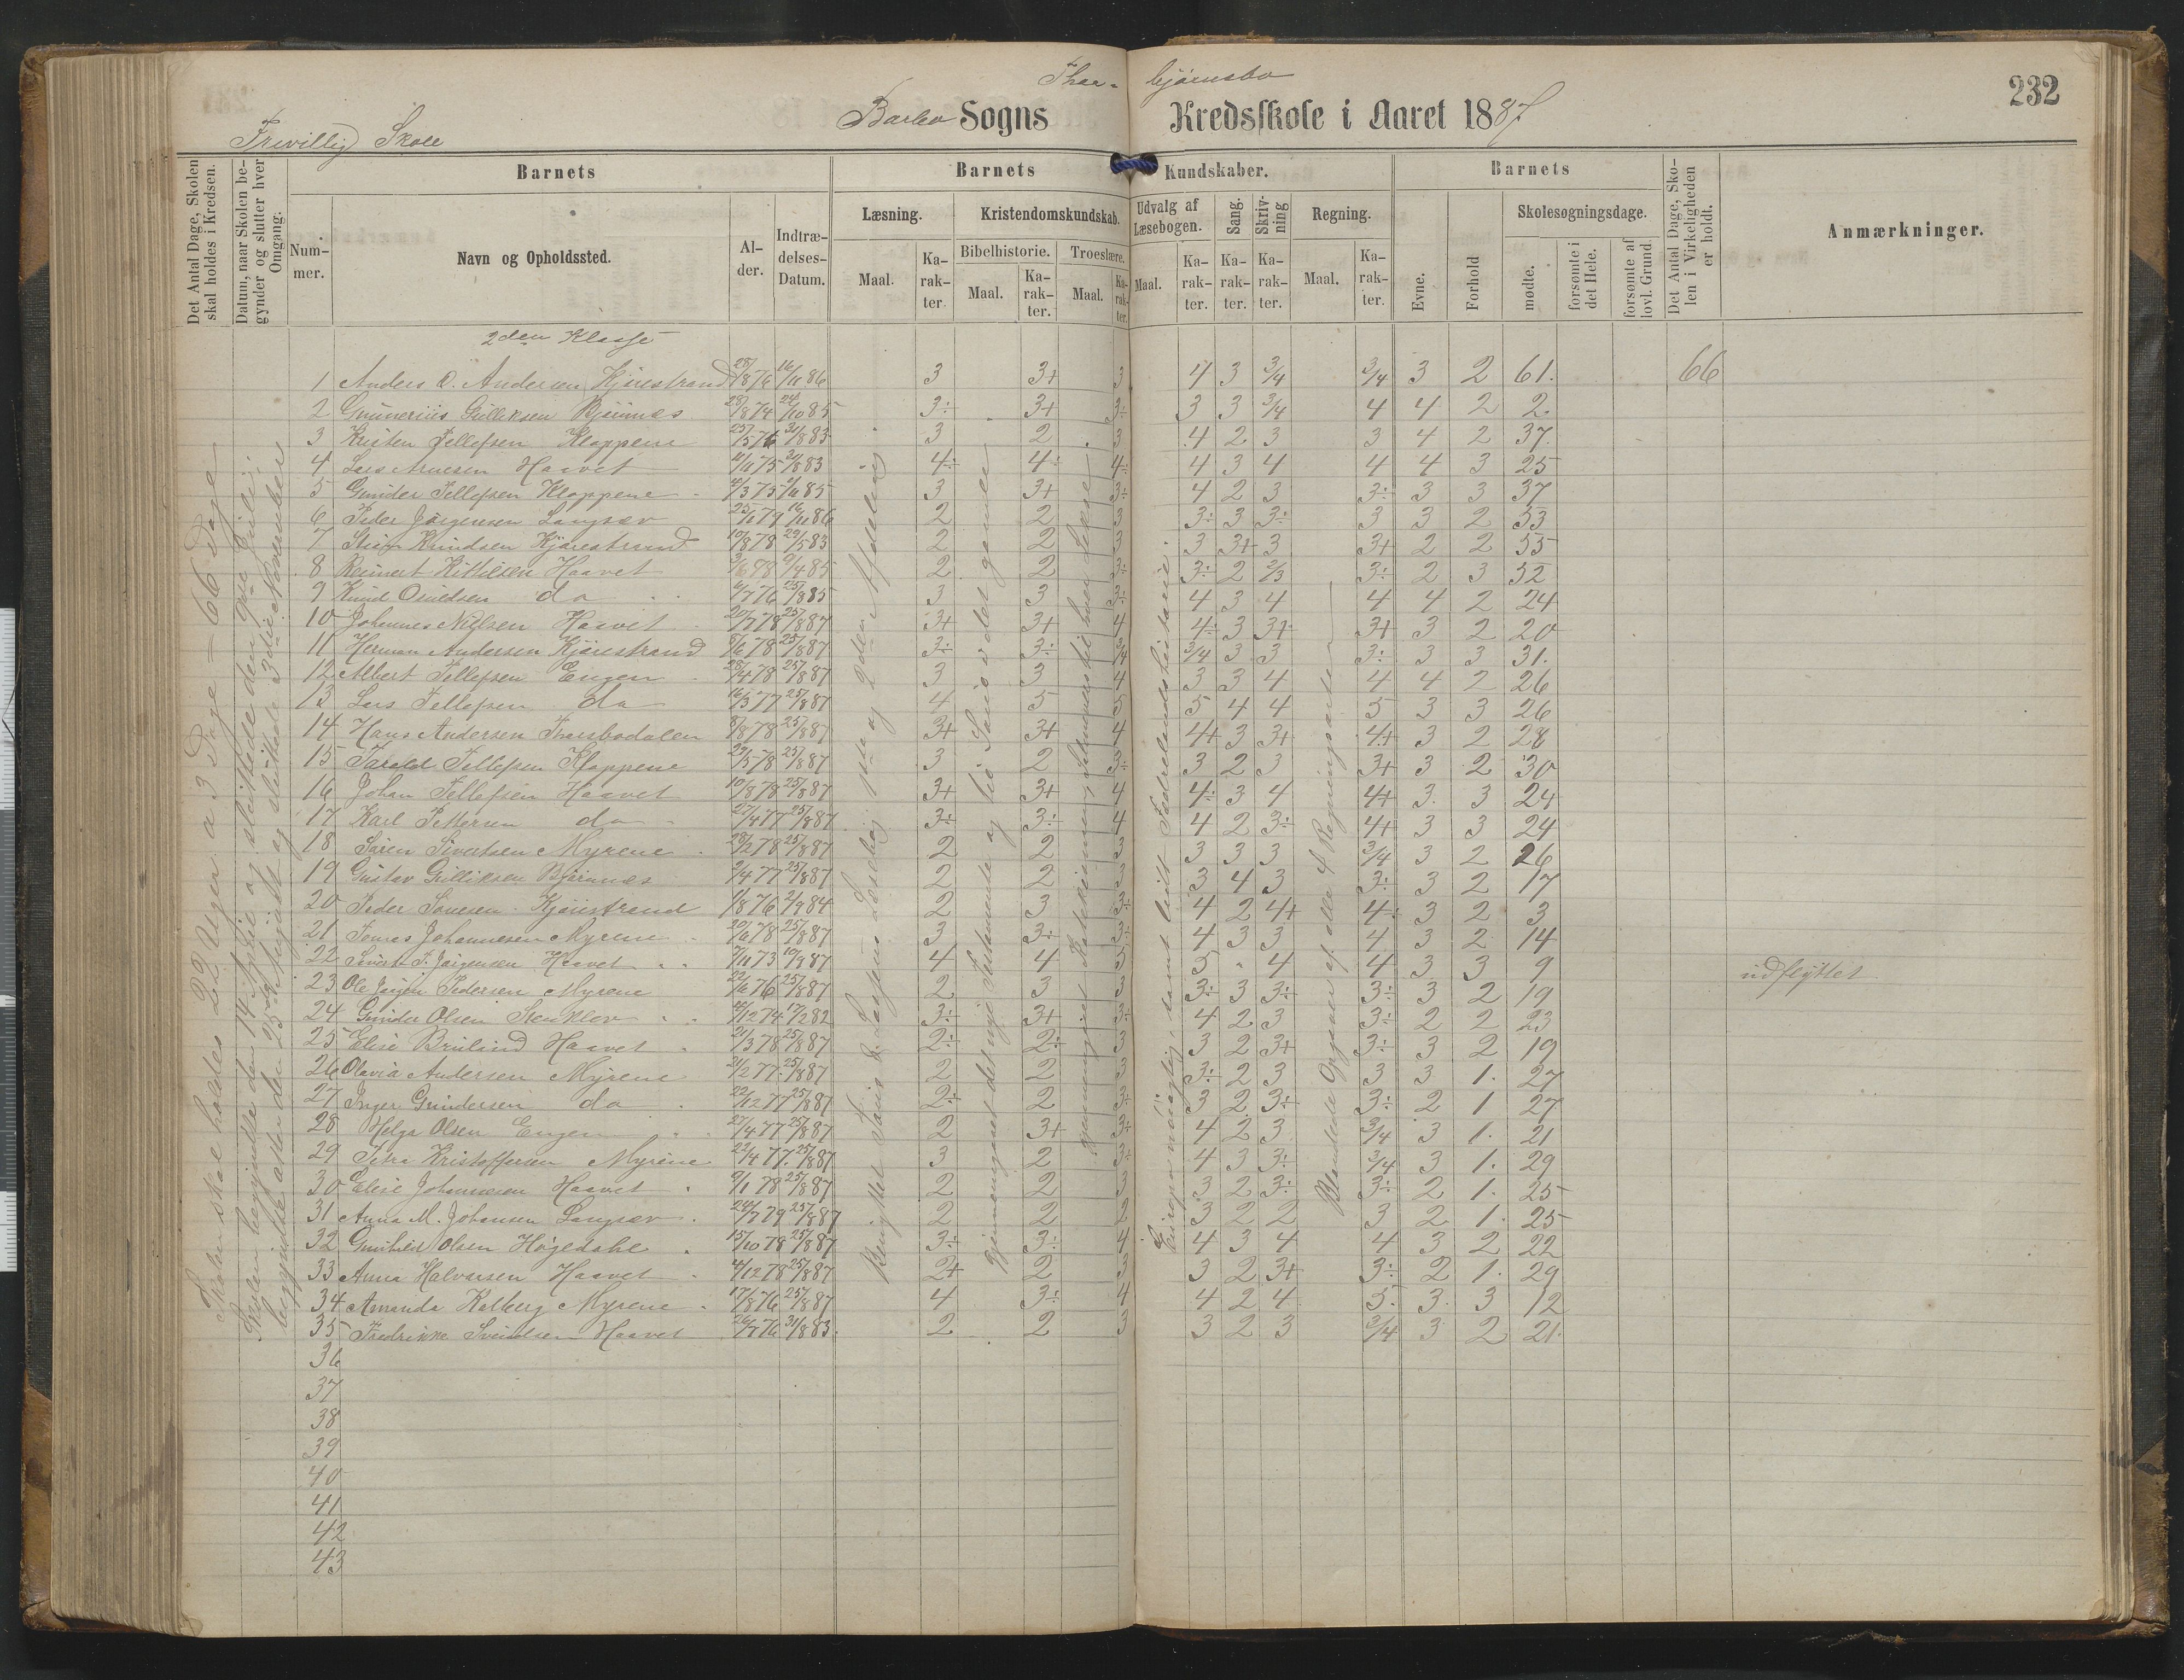 232
Thor- bjørnsbo
Barbo Sogns Kredsskole i Aaret 1887.
Frivillig Skole
Det Antal Dage, Skolen skal holdes i Kredsen.
Datum, naar Skolen begynder og slutter hver Omgang.
Barnets
Barnets Kundskaber.
Barnets
Det Antal Dage, Skolen i Virkeligheden er holdt.
Anmærkninger.
Nummer.
Navn og Opholdssted.
Alder.
Indtrædelses-Datum.
Læsning.
Kristendomskundskab.
Udvalg af Læsebogen.
Sang.
Skrivning
Regning.
Evne.
Forhold
Skolesøgningsdage.
Bibelhistorie.
Troeslære.
Maal.
Karakter.
Maal.
Karakter.
Maal.
Karakter.
Maal.
Karakter.
Karakter.
Karakter.
Maal.
Karakter.
mødte.
forsømte i det Hele.
forsømte af lovl. Grund.
2den Klasse
1 Anders O. Andersen Kjærestrand 28/8 76 16/11 86 3 3+ 3 4 3 3/4 3/4 3 2 61. 66
2 Gunnerius Gulliksen Bjørnnes 28/8 74 24/10 85 3÷ 3+ 3÷ 3 3 3/4 4 4 2 2
3 Kristen Tellefsen Kloppene 25/5 76 31/8 83 3 2 3 4 2 3 3 4 2 37
4 Lars Arnesen Haavet 11/11 75 31/8 83 4÷ 4÷ 4÷ 4 3 4 4 4 3 25
5 Gunder Tellefsen Kloppene 4/3 75 2/11 85 3 3+ 3÷ 4 2 3 3÷ 3 3 37
6 Peder Jørgensen Langsæv 25/1 79 16/11 86 2 2 3 3÷ 3 3÷ 3 3 2 53
7 Knudsen Kjærestrand 10/8 78 29/5 83 2 2 3 3 3+ 3 3+ 2 2 55
8 Reinert Kittilsen Haavet 2 2 3÷ 3÷ 2 2/3 3÷ 2 3 52
9 Knud Osuldsen do 4/7 76 25/8 85 3 3 3÷ 4 3 4 4 4 2 24
10 Johannes Nilsen Haavet 20/7 78 25/8 87 3+ 3+ 4 4÷ 3 3+ 3+ 3 2 20
11 Herman Andersen Kjærestrand 8/6 78 25/8 87 3÷ 3÷ 3/4 3/4 3 3 3÷ 3 3 31.
12 Albert Tellefsen Engen 28/4 78 25/8 87 3 3 4 3 3 4 4 4 2 26
13 Lars Tellefsen do 16/3 77 25/8 87 4 5 5 5 4 4 5 3 3 26
14 Hans Andersen Thorsbodalen 8/8 78 25/8 87 3+ 3+ 4 4+ 3 3+ 4+ 3 2 28
15 Tarald Tellefsen Kloppene 29/5 78 25/8 87 3 2 3÷ 3 2 3 3+ 3 2 30
16 Johan Tellefsen Haavet 10/8 78 25/8 87 3+ 3+ 4 4÷ 3 4 4+ 3. 3 24
17 Karl Pettersen do 27/4 77 25/8 87 3÷ 3÷ 4 4 2 3÷ 4+ 3 3 24
18 Søren Sivertsen Myrene 28/2 78 25/8 87 2 2 3 3 3 3 3/4 3 2 26
19 Gustav Gulliksen Bjørnnes 2/4 77 25/8 87 2 2 3 3 4 3 3÷ 3 2 17
20 Peder Kjærestrand 1/8 76 2/9 84 2 3 3÷ 4 2 4+ 4÷ 3 2 3
21 Tomas Johannesen Myrene 20/6 78 25/8 87 3 3÷ 3÷ 4 3 3 4 3 2 14
22 Jørgensen Haavet 7/11 73 10/9 87 4 4 5 5 4 4 3 3 9 udflyttet
23 Ole Jørgen Pedersen Myrene 22/6 76 25/8 87 2 3 3 3÷ 3 3÷ 3÷ 3 2 19
24 Gunder Olsen Stenklev 4/12 74 17/2 82 3÷ 3+ 3÷ 4 2 3 3÷ 2 2 23
25 Elise Bruland Haavet 21/3 78 25/8 87 2÷ 2÷ 3 3 2 3+ 3÷ 3 2 19
26 Olavia Andersen Myrene 21/2 77 25/8 87 2 2 3 3÷ 2 3 3 3 1. 27
27 Inger Gundersen do 22/12 77 25/8 87 2÷ 2 3÷ 3 2 3÷ 3÷ 2 1 27
28 Helga Olsen Engen 27/4 77 25/8 87 2 3+ 3÷ 4 2 3 3/4 3 1. 21
29 Petra Kristoffersen Myrene 22/4 77. 25/8 87 3 2 3÷ 4 3 3÷ 3/4 3 1. 29
30 Elise Johannesen Haavet 9/1 78 25/8 87 2 2 3 3 2 3÷ 3÷ 2 1. 25
31 Anna M. Johansen Langsæv 24/7 79 25/8 87 2 2 2 3 2 2 3 2 1. 25
32 Gunhild Olsen Høgedahl 15/10 78 25/8 87 3÷ 3÷ 4 4 3 4 4 3 2 22
33 Anna Halvorsen Haavet 4/12 78 25/8 87 2+ 2 3 3 2 3+ 3÷ 2 1. 29
34 Amanda Kalberg Myrene 17/8 76 25/8 87 4 3÷ 4 4 2 4 5. 3. 3 12
35 Fredrikke Svendsen Haavet 26/7 76 31/8 83. 2 2 3 3 2 3 3/4 3 2 21
36
37
38
39
40
41
42
43
Skolen skal holdes 22 Uger a 3 Dage = 66 Dage
Skolen begyndte den 14 April og sluttede den 9de Juli.
begyndte atter den 25de August og sluttede 3die November
Benyttet P. Jensens Læsebog 1ste og 2den Afdeling
Gjennemgaaet det nye Testamente og
gjennemgaaet Katekismen
Europa nøiagtig, samt lidt Fædrelandshistorie.
Blandede Opgaver af alle 4 Regningsarter